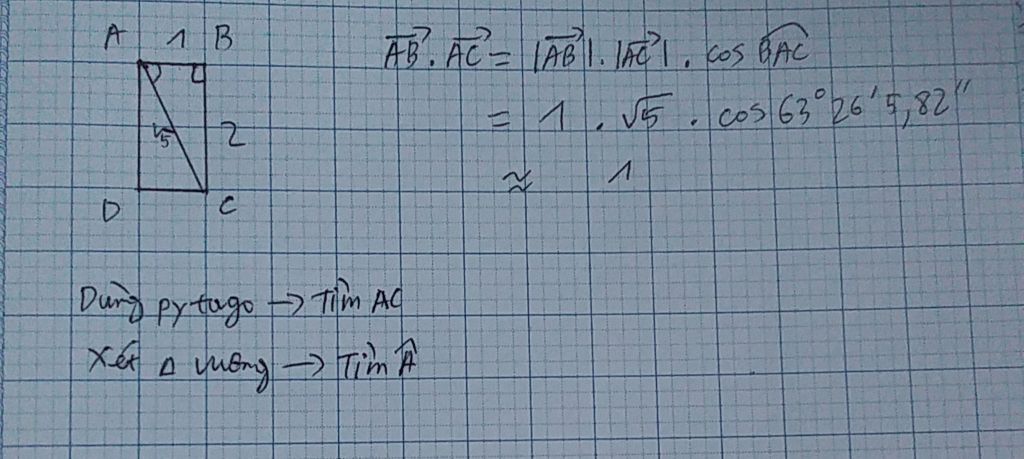 A 1 B
√5 2
D C
AB⃗ . AC⃗ = |AB⃗| . |AC⃗| . cos B̂AC
= 1 . √5 . cos 63° 26' 5,82"
≈ 1
Dùng pytago → Tìm AC
Xét Δ vuông → Tìm Â